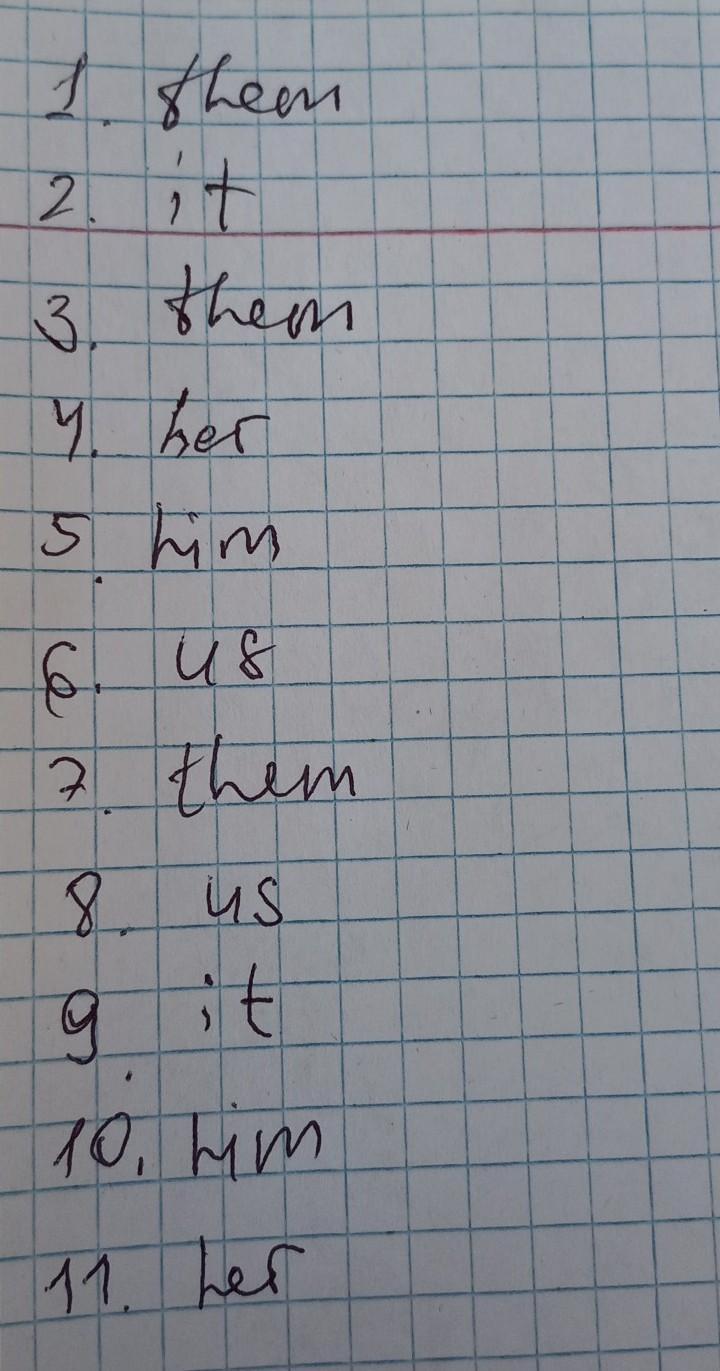 1. them
2. it
3. them
4. her
5. him
6. us
7. them
8. us
9. it
10. him
11. her